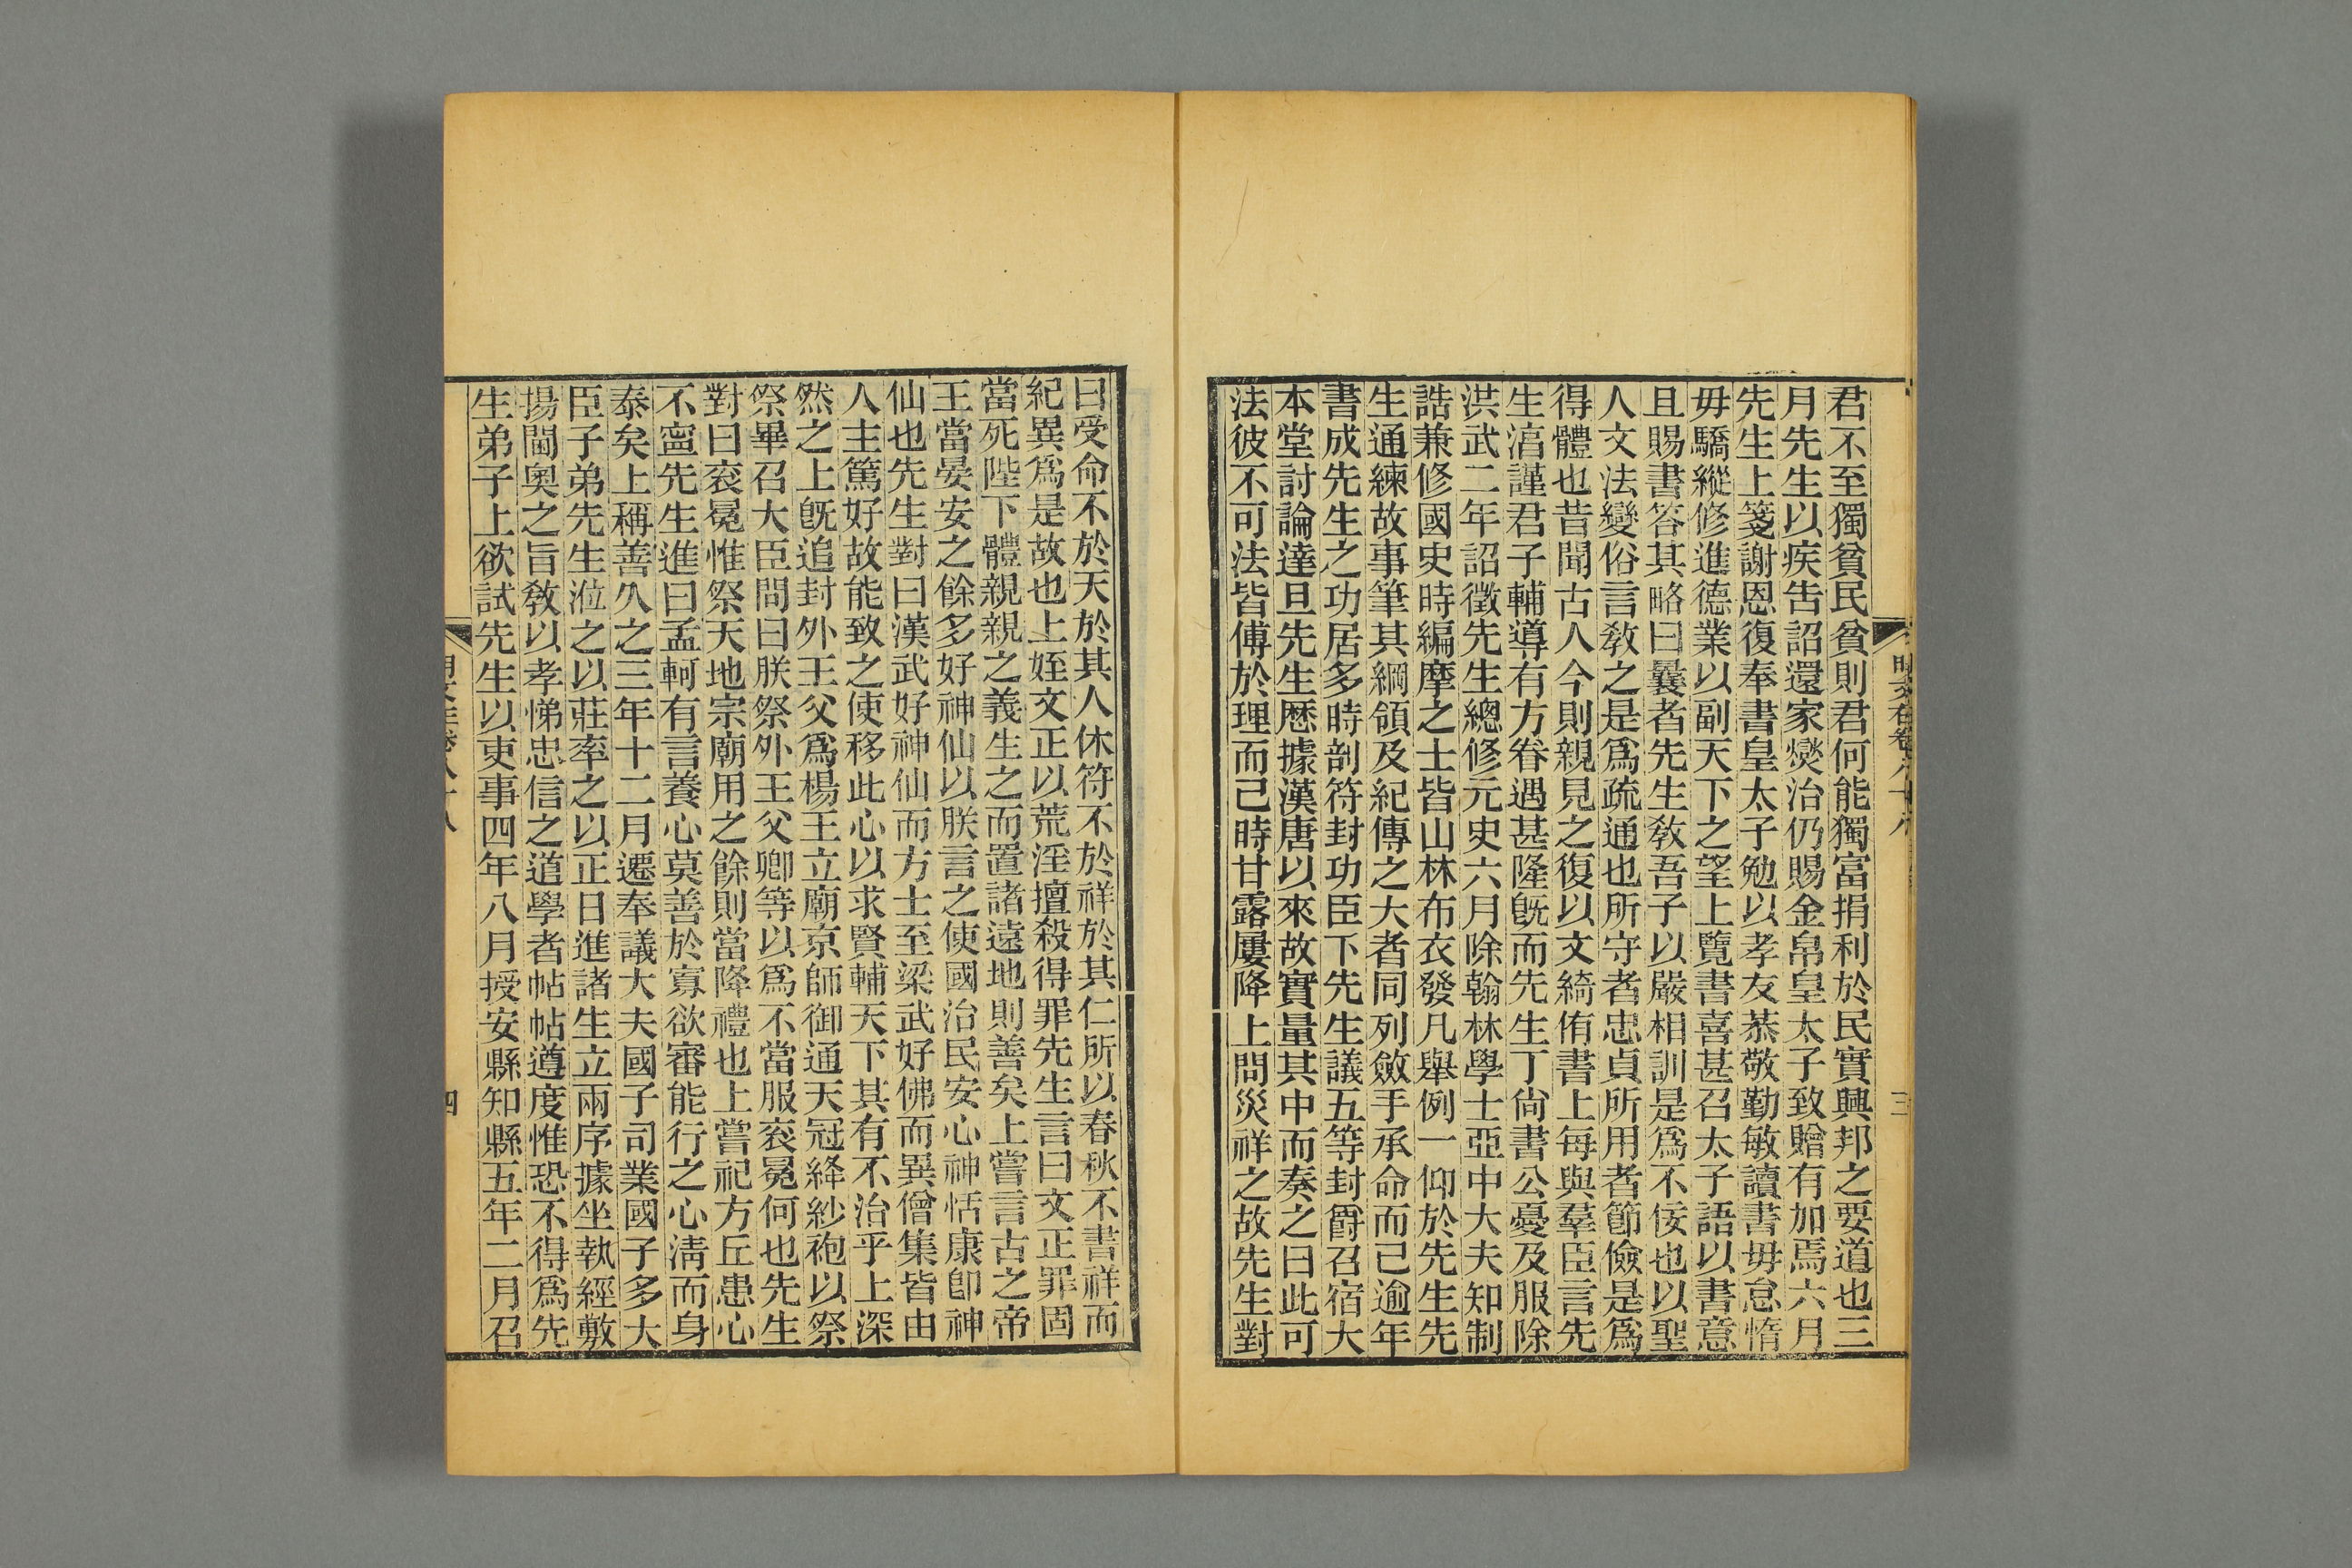 君不至獨貧民貧則君何能獨富捐利於民實興邦之要道也三
月先生以疾告詔還家燮治仍賜金帛皇太子致贈有加焉六月
先生上箋謝恩復奉書皇太子勉以孝友恭敬勤敏讀書毋怠惰
毋驕縱修進德業以副天下之望上覽書喜甚召太子語以書意
且賜書答其略曰曩者先生敎吾子以嚴相訓是爲不佞也以聖
人文法變俗言敎之是爲疏通也所守者忠貞所用者節儉是爲
得體也昔聞古人今則親見之復以文綺侑書上每與羣臣言先
生湻謹君子輔導有方眷遇甚隆旣而先生丁尙書公憂及服除
洪武二年詔徵先生總修元史六月除翰林學士亞中大夫知制
誥兼修國史時編摩之士皆山林布衣發凡舉例一仰於先生先
生通練故事筆其綱領及紀傳之大者同列斂手承命而已逾年
書成先生之功居多時剖符封功臣下先生議五等封爵召宿大
本堂討論達旦先生歷據漢唐以來故實量其中而奏之曰此可
法彼不可法皆傅於理而已時甘露屢降上問災祥之故先生對
明文在卷八十八
三
曰受命不於天於其人休符不於祥於其仁所以春秋不書祥而
紀異爲是故也上姪文正以荒淫擅殺得罪先生言曰文正罪固
當死陛下體親親之義生之而置諸遠地則善矣上嘗言古之帝
王當晏安之餘多好神仙以朕言之使國治民安心神恬康卽神
仙也先生對曰漢武好神仙而方士至梁武好佛而異僧集皆由
人主篤好故能致之使移此心以求賢輔天下其有不治乎上深
然之上旣追封外王父爲楊王立廟京師御通天冠絳紗袍以祭
祭畢召大臣問曰朕祭外王父卿等以爲不當服袞冕何也先生
對曰袞冕惟祭天地宗廟用之餘則當降禮也上嘗祀方丘患心
不寧先生進曰孟軻有言養心莫善於寡欲審能行之心淸而身
泰矣上稱善久之三年十二月遷奉議大夫國子司業國子多大
臣子弟先生涖之以莊率之以正日進諸生立兩序據坐執經敷
揚閫奧之旨敎以孝悌忠信之道學者帖帖遵度惟恐不得爲先
生弟子上欲試先生以吏事四年八月授安縣知縣五年二月召
明文在卷八十八
四